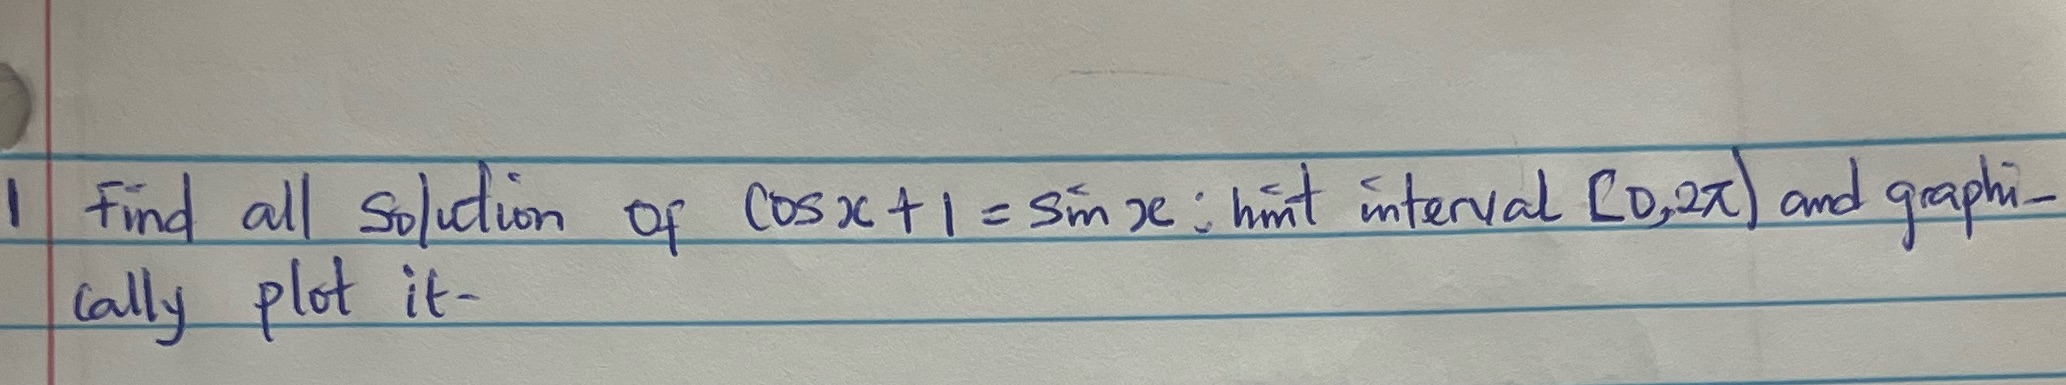 1 Find all solution of cosx + 1 = sin x : hint interval [0,2π) and graphi-
cally plot it-